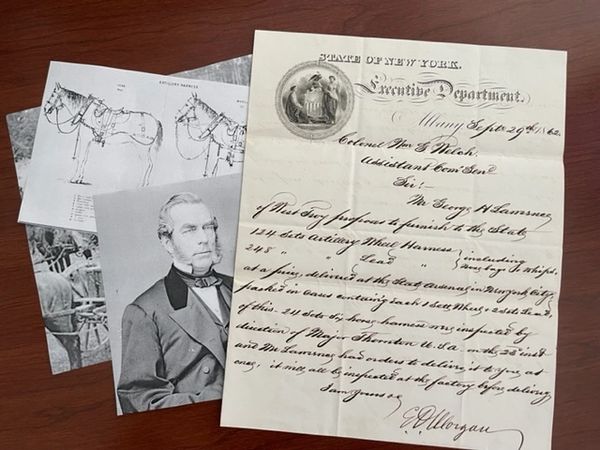 ARTILLERY HARNESS
STATE OF NEW YORK.
Executive Department.
Albany Sept. 29th 1862.
Colonel Wm G Welch.
Assistant Com Genl
Sir:
Mr George H Lawrence
of West Troy proposes to furnish to the State
124 Sets Artillery Wheel Harness
248 " " Lead " including
nose bags & Whips.
at a price, delivered at the State Arsenal in New York City,
packed in cases containing each 1 Sett Wheel & 2 Sets Lead,
of this 24 Sets Six horse harness were inspected by
direction of Major Thornton U.S.A on the 23 inst
and Mr Lawrence has orders to deliver it to you at
once, it will all be inspected at the factory before delivery
I am yours
E. D. Morgan